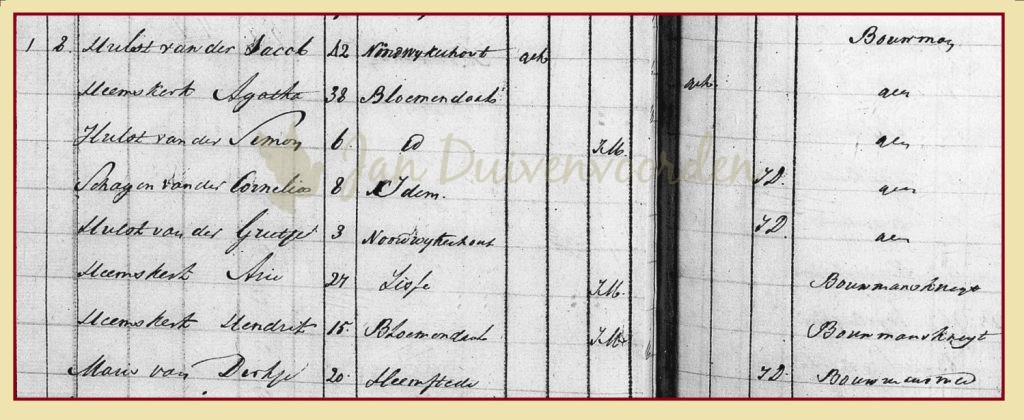 1 8. Hulst van der Jacob 42 Noordwykerhout geh Bouwman
Heemskerk Agatha 38 Bloemendaal geh. gen
Hulst van der Simon 6. Id JM. gen
Schagen van der Cornelis 8 Idem. JD. gen
Hulst van der Grietje 3 Noordwykerhout JD. gen
Heemskerk Arie 27 Lisse JM. Bouwmansknegt
Heemskerk Hendrik 15. Bloemendaal JM. Bouwmansknegt
Maris van Dirkje 20. Heemstede JD. Bouwmansmeid
Jan Duivenvoorden